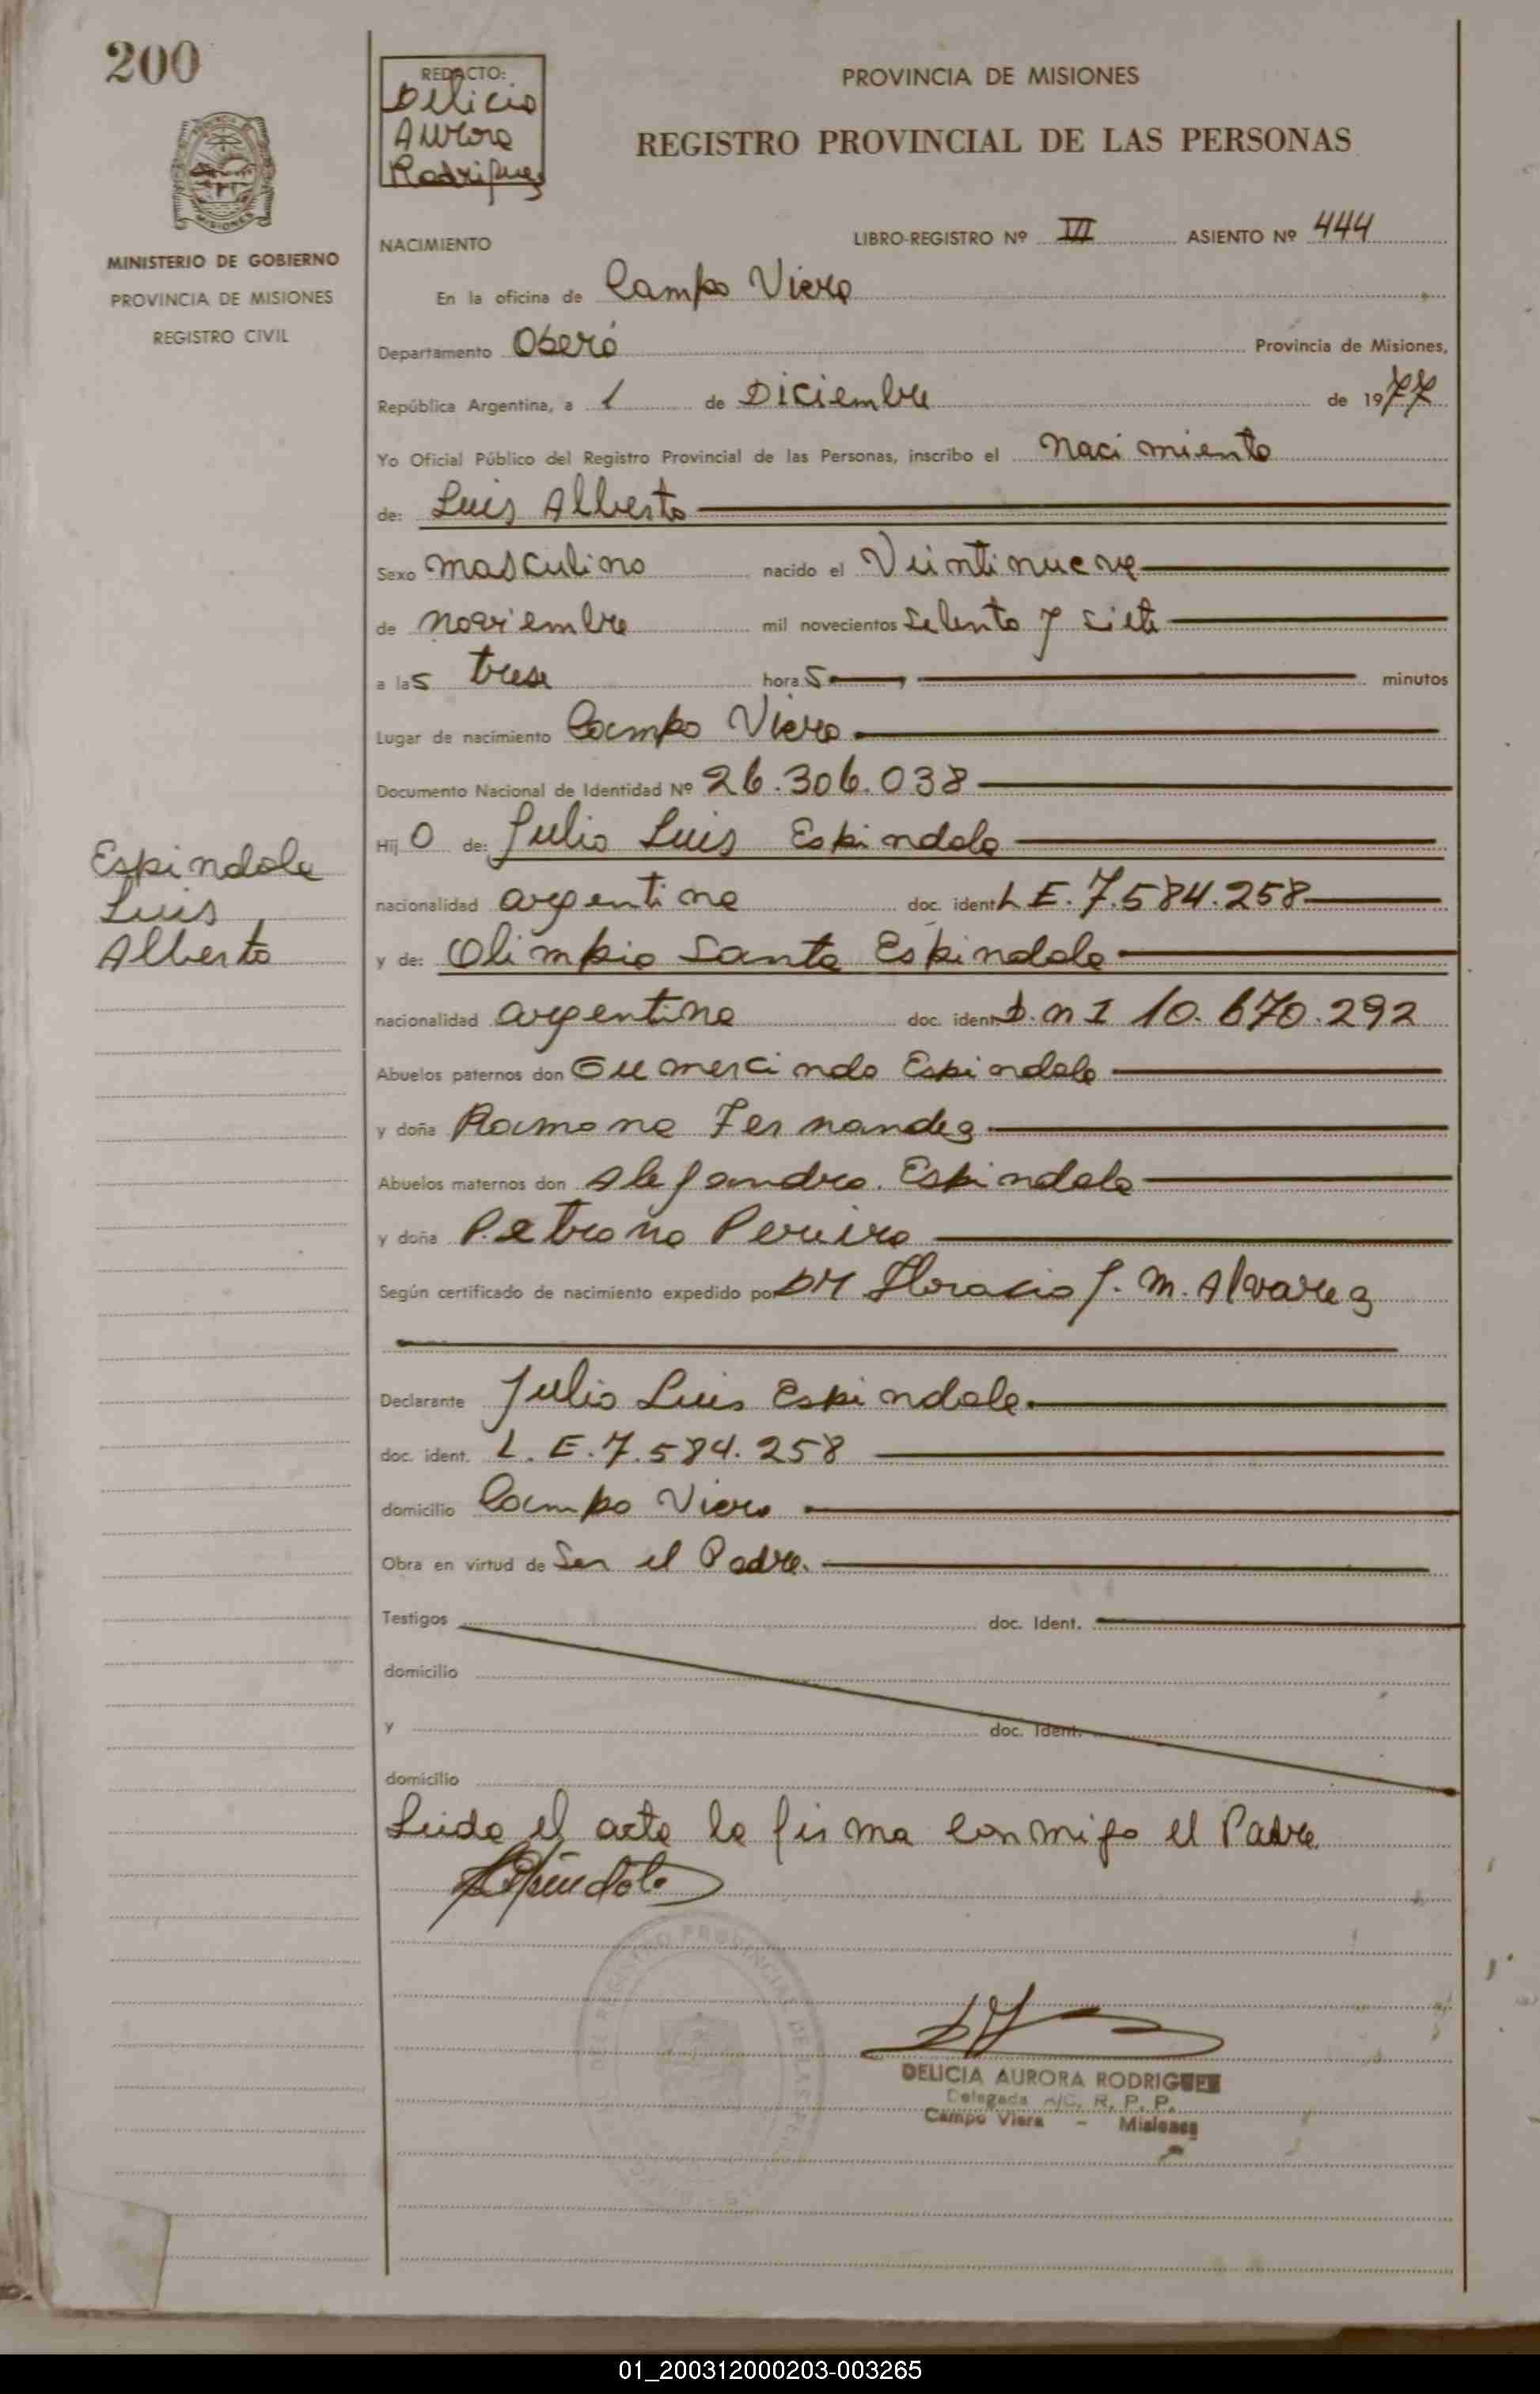 200
REDACTO:
Delicia
Aurora
Rodriguez
PROVINCIA DE MISIONES
REGISTRO PROVINCIAL DE LAS PERSONAS
MINISTERIO DE GOBIERNO
PROVINCIA DE MISIONES
REGISTRO CIVIL
NACIMIENTO
LIBRO-REGISTRO Nº III ASIENTO Nº 444
En la oficina de Campo Viera
Departamento Oberá Provincia de Misiones,
República Argentina, a 1 de Diciembre de 1977
Yo Oficial Público del Registro Provincial de las Personas, inscribo el Nacimiento
de: Luis Alberto
Sexo masculino nacido el Veintinueve
de noviembre mil novecientos setenta y siete
a las trese horas minutos
Lugar de nacimiento Campo Viera
Documento Nacional de Identidad Nº 26.306.038
Hijo de: Julio Luis Espindola
nacionalidad argentina doc. ident L.E. 7.584.258
y de: Olimpia Santa Espindola
nacionalidad argentina doc. ident D.n I 10.670.292
Abuelos paternos don Gumercindo Espindola
y doña Ramona Fernandez
Abuelos maternos don Alejandro Espindola
y doña Petrona Pereira
Según certificado de nacimiento expedido por Dr Horacio J. M. Alvarez
Declarante Julio Luis Espindola
doc. ident. L.E. 7.584.258
domicilio Campo Viera
Obra en virtud de Ser el Padre.
Testigos doc. Ident.
domicilio
y doc. Ident.
domicilio
Leida el acta la firma conmigo el Padre
Espindola
DELICIA AURORA RODRIGUEZ
Delegada A/C. R. P. P.
Campo Viera - Misiones
Espindola
Luis
Alberto
01_200312000203-003265